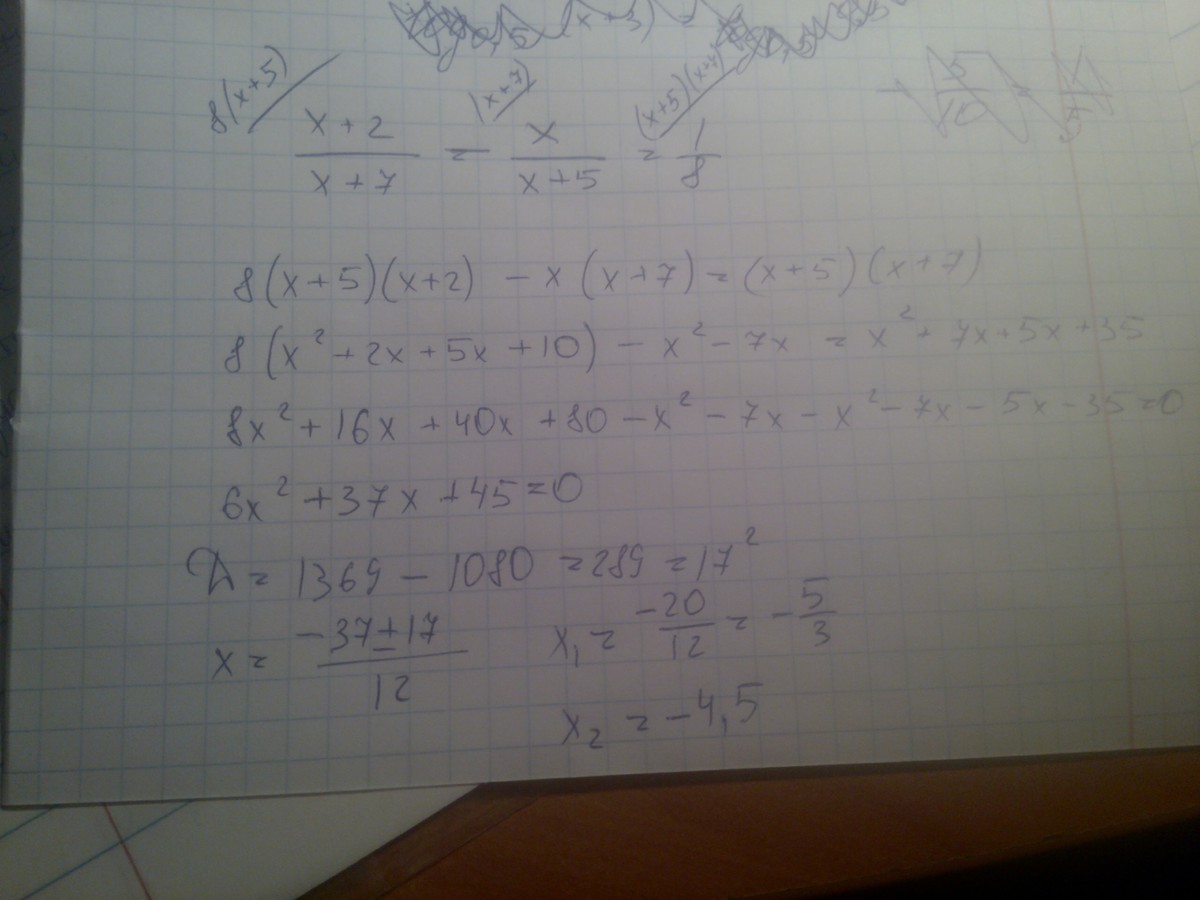 (x+3) =
8(x+5) (x+7) (x+5)(x+7)
x+2 / x+7 = x / x+5 = 1/8
8(x+5)(x+2) - x(x+7) = (x+5)(x+7)
8(x² + 2x + 5x + 10) - x² - 7x = x² + 7x + 5x + 35
8x² + 16x + 40x + 80 - x² - 7x - x² - 7x - 5x - 35 = 0
6x² + 37x + 45 = 0
D = 1369 - 1080 = 289 = 17²
x = -37 ± 17 / 12 x₁ = -20/12 = -5/3
x₂ = -4,5